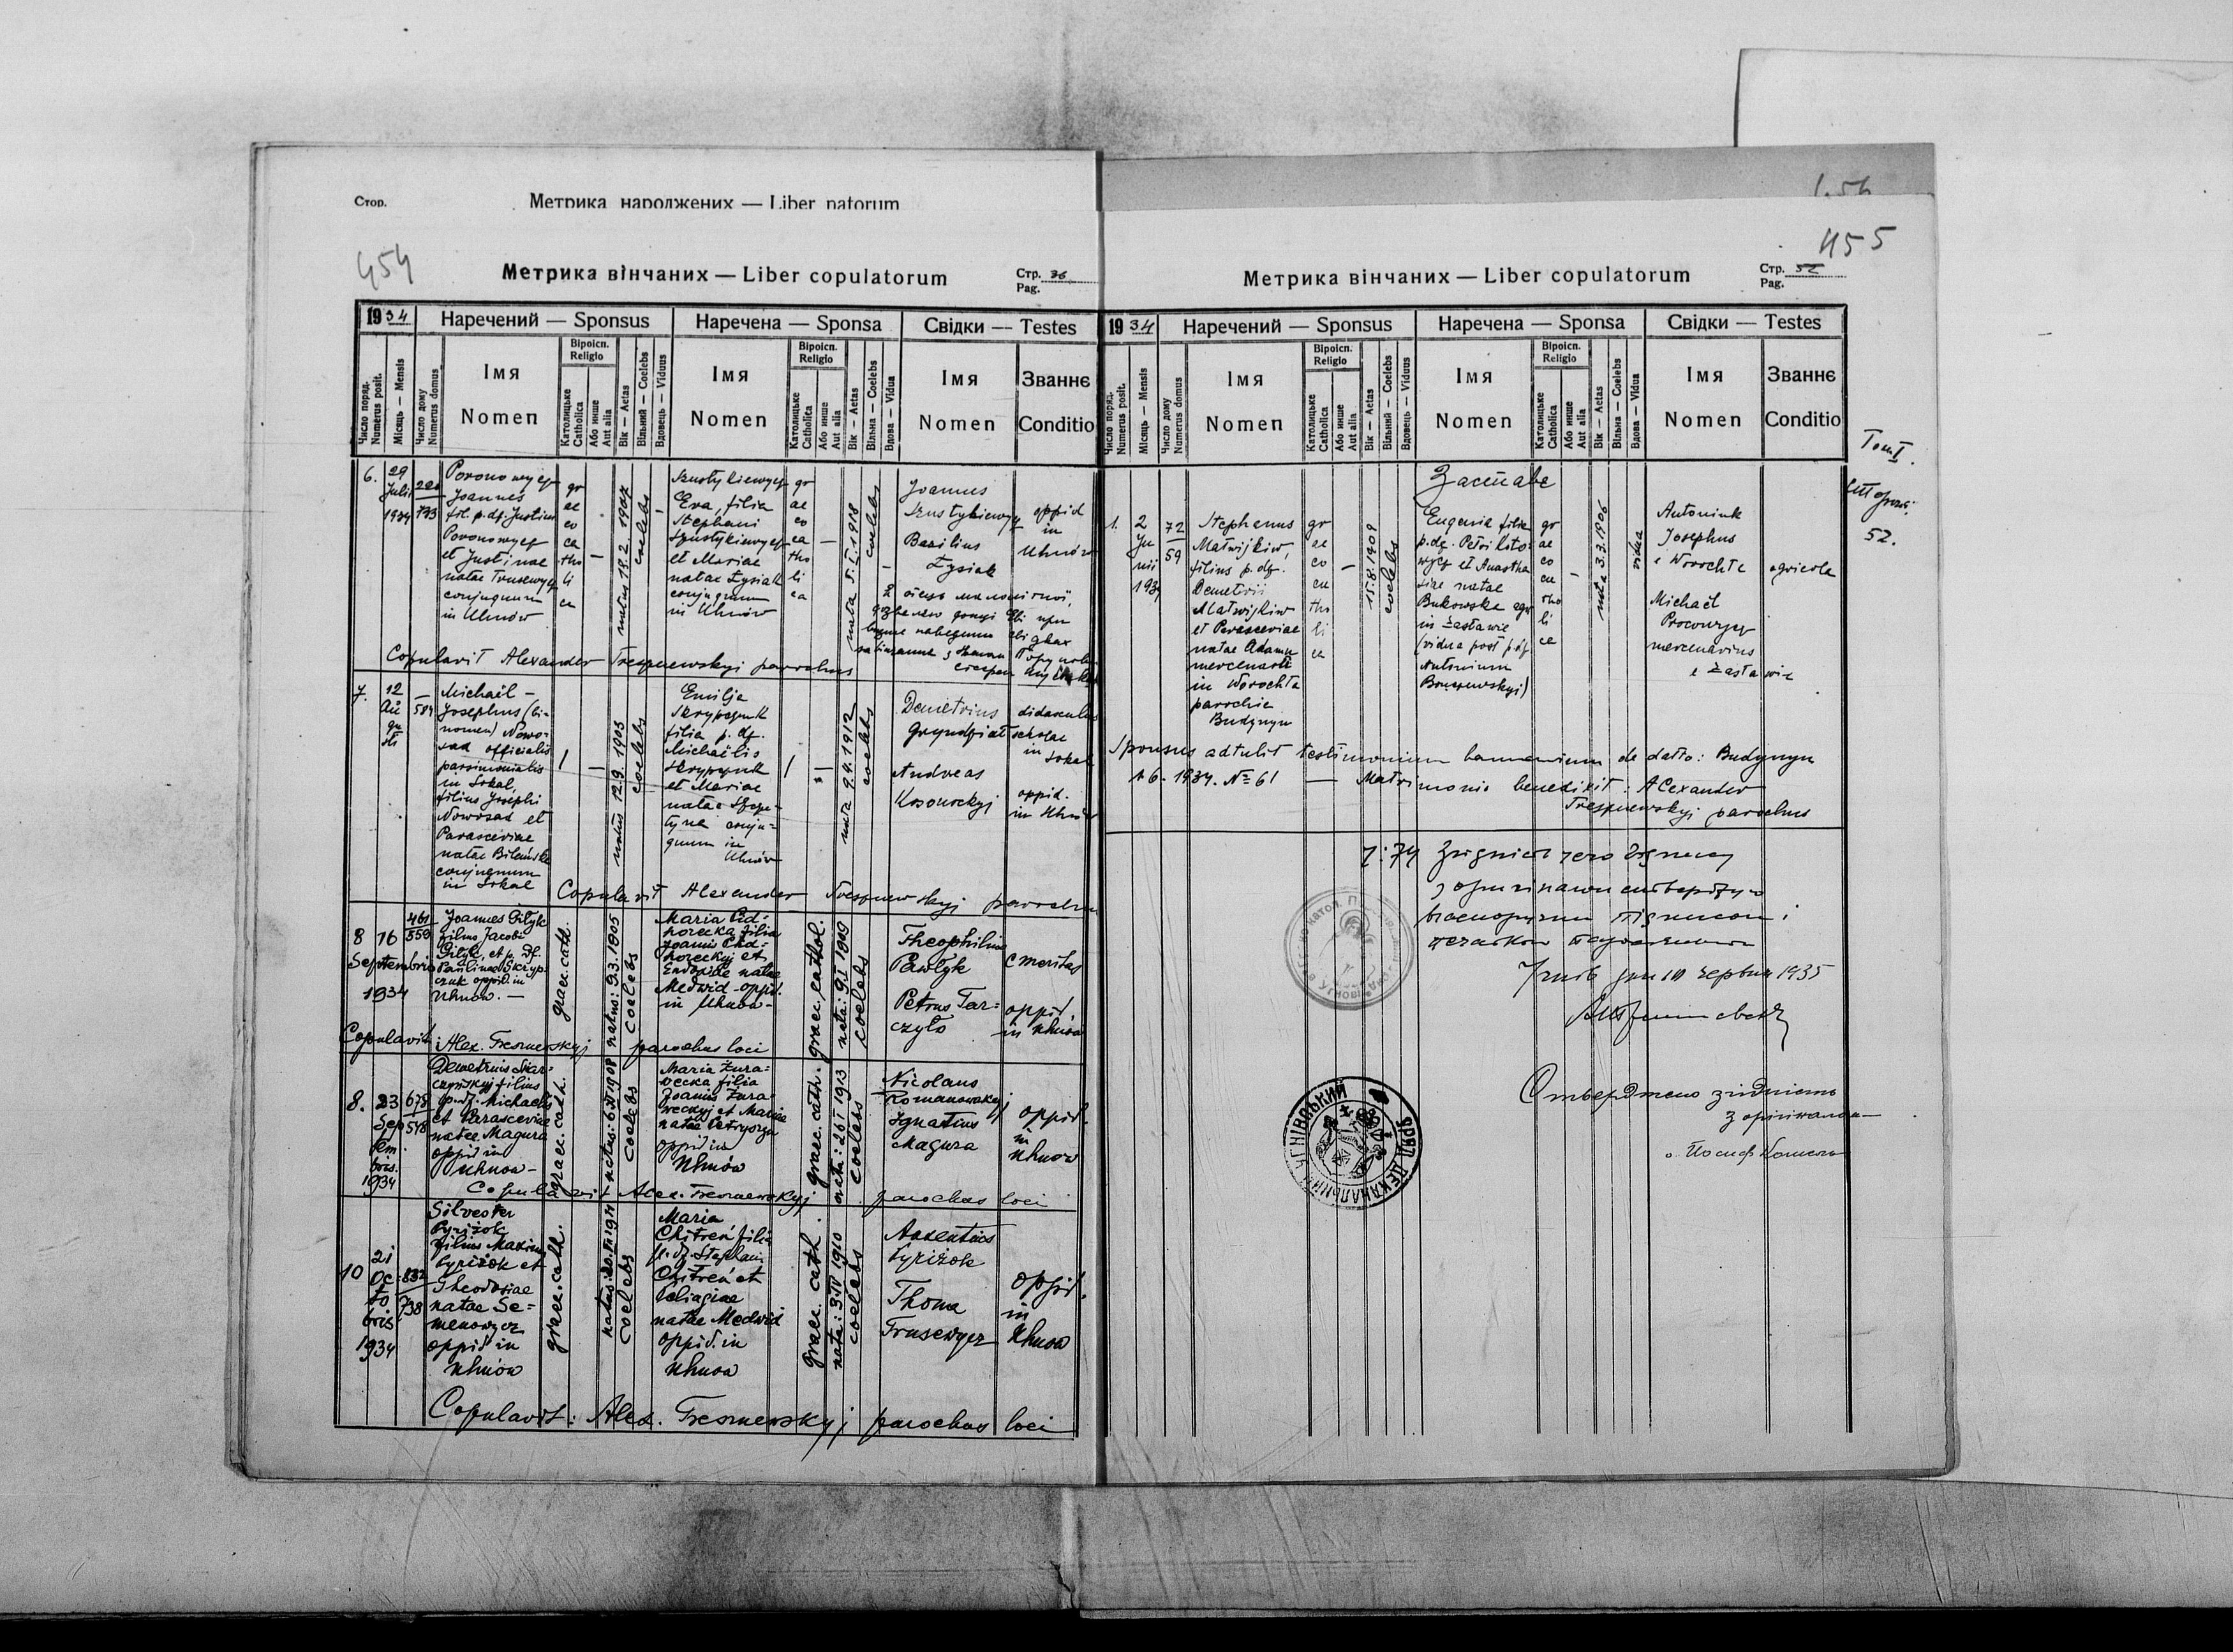 Стор.
Метрика народжених — Liber natorum
454
Метрика вінчаних — Liber copulatorum
Стр. 36
Pag.
1934
Наречений — Sponsus
Наречена — Sponsa
Свідки — Testes
Число поряд.
Numerus posit.
Місяць — Mensis
Число дому
Numerus domus
Імя
Nomen
Віроісп.
Religio
Католицьке
Catholica
Або инше
Aut alia
Вік — Aetas
Вільний — Coelebs
Вдовець — Viduus
Імя
Nomen
Віроісп.
Religio
Католицьке
Catholica
Або инше
Aut alia
Вік — Aetas
Вільна — Coelebs
Вдова — Vidua
Імя
Nomen
Званнє
Conditio
6.
29
Julii
1934
793
Poronowycz
Joannes
fil. p. df. Justini
Poronowycz
et Justinae
natae Trusewycz
conjugum
in Uhnów
gr
ae
co
ca
tho
li
ca
natus 18.2.1907
coelebs
Szustykiewycz
Eva, filia
Stephani
Szustykiewycz
et Mariae
natae Łysiak
conjugum
in Uhnów
gr
ae
co
ca
tho
li
ca
nata 5.I.1918
coelebs
Joannes
Szustykiewycz
Basilius
Łysiak
oppid
in
Uhnów
Copulavit Alexander Tresznewskyj parochus
7.
12
Au
gu
sti
584
Michaël —
Josephus (bi-
nomen) Nowo-
sad officialis
parsimonialis
in Sokal,
filius Josephi
Nowosad et
Parasceviae
natae Bilińska
conjugum
in Sokal
natus 12.9.1905
coelebs
Emilja
Skrypczuk
filia p. df.
Michaëlis
Skrypczuk
et Mariae
natae
conju-
gum in
Uhnów
nata 9.4.1912
coelebs
Demetrius
didascalus
scholae
in
Sokal
Andreas
Kosonockyj
oppid.
in Uhnów
Copulavit Alexander Tresznewskyj parochus
8
16
Septembris
1934
461
559
Joannes Gilyk
filius Jacobi
Gilyk, et p. df.
Paulinae Skryp-
czuk oppid. in
Uhnów. —
graec. cath.
natus: 9.3.1905
coelebs
Maria Pid-
horecka filia
Joannis Pid-
horeckyj et
Eudoxiae natae
Medwid oppid.
in Uhnów —
graec. cathol.
nata: 9.I 1909
coelebs
Theophilus
Pawłyk
emeritus
Petrus Tar-
czyło
oppid.
in Uhnów
Copulavit: Alex. Tresznewskyj parochus loci
8.
23
Sep
tem
bris.
1934
678
578
Demetrius
filius
p. df. Michaelis
et Parasceviae
natae Magura
oppid in
Uhnów —
graec. cath.
natus: 6.XI 1908
coelebs
Maria Żura-
wecka filia
Joannis Żura-
weckyj et Mariae
natae Petryszyn
oppid in
Uhnów
graec. cath.
nata: 26 I 1913
coelebs
Nicolaus
Romanowskyj
Ignatius
Magura
oppid.
in
Uhnów
Copulavit Alex. Tresznewskyj parochus loci
10
21
Oc
to
bris
1934
832
738
Silvester
Pyriżok
filius Maximi
Pyriżok et
Theodosiae
natae Se-
menowycz
oppid in
Uhnów
graec. cath.
coelebs
Maria
Chitreń filia
p. df. Stephani
Chitreń et
Pelagiae
natae Medwid
oppid. in
Uhnów
graec. cath.
nata: 3.IV 1910
coelebs
Auxentius
Pyriżok
Thoma
Trusewycz
oppid.
in
Uhnów
Copulavit: Alex. Tresznewskyj parochus loci
455
Метрика вінчаних — Liber copulatorum
Стр. 52
Pag.
1934
Наречений — Sponsus
Наречена — Sponsa
Свідки — Testes
Число поряд.
Numerus posit.
Місяць — Mensis
Число дому
Numerus domus
Імя
Nomen
Віроісп.
Religio
Католицьке
Catholica
Або инше
Aut alia
Вік — Aetas
Вільний — Coelebs
Вдовець — Viduus
Імя
Nomen
Віроісп.
Religio
Католицьке
Catholica
Або инше
Aut alia
Вік — Aetas
Вільна — Coelebs
Вдова — Vidua
Імя
Nomen
Званнє
Conditio
Том I.
52.
Заставе
1.
2
Ju
nii
1934
72
59
Stephanus
Matwijkiw,
filius p. df.
Demetrii
Matwijkiw
et Parasceviae
natae Adamu
mercenarii
in Worochta
parochie
Budynyn
gr
ae
co
ca
tho
li
ca
15.8.1909
coelebs
Eugenia filia
p. df. Petri Koto-
wycz et Anasta
siae natae
Bukowska agr
in Zastawie
(vidua post p. df
Antonium
gr
ae
co
ca
tho
li
ca
nata 3.3.1906
vidua
Antoniuk
Josephus
e Worochta
agricola
Michaël
Procowycz
mercenarius
e Zastawie
Sponsus adtulit testimonium bannorum de dato: Budynyn
1.6.1934. № 61 — Matrimonio benedixit: Alexander
Tresznewskyj parochus
Ч: 74
з оригіналом стверджую
власноручним підписом і
печаткою парохіяльною
Угнів дня 10 червня 1935
УГНІВСЬКИЙ УРЯД ДЕКАНАЛЬНИЙ
Стверджено згідність
з оригіналом